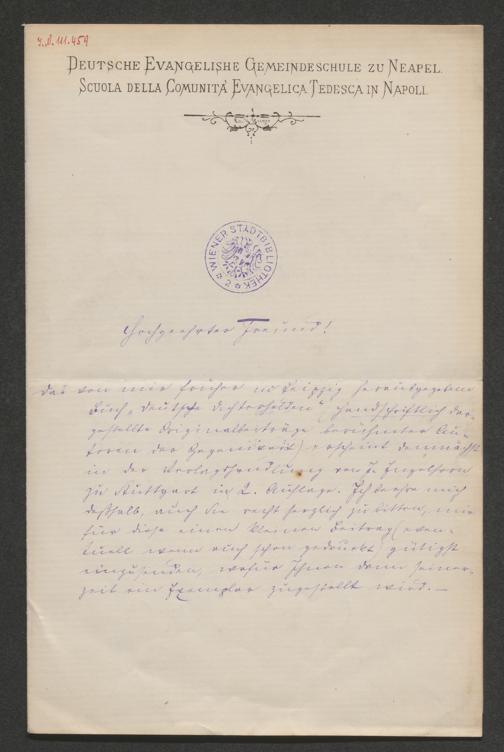 I.N. 111.459
DEUTSCHE EVANGELISHE GEMEINDESCHULE ZU NEAPEL.
SCUOLA DELLA COMUNITÀ EVANGELICA TEDESCA IN NAPOLI.
WIENER STADTBIBLIOTHEK
Hochgeehrter Freund!
Das von mir früher in Leipzig herausgegebene
Buch „Deutsche Dichterhelden" (handschriftlich dar-
gestellte Originalbeiträge berühmter Au-
toren der Gegenwart) erscheint demnächst
in der Verlagshandlung von J. Engelhorn
zu Stuttgart in 2. Auflage. Ich beehre mich
deßhalb, auch Sie recht herzlich zu bitten, mir
für diese einen kleinen Beitrag (even-
tuell wenn auch schon gedruckt) gütigst
einzusenden, wofür Ihnen dann seiner-
zeit ein Exemplar zugestellt wird. —